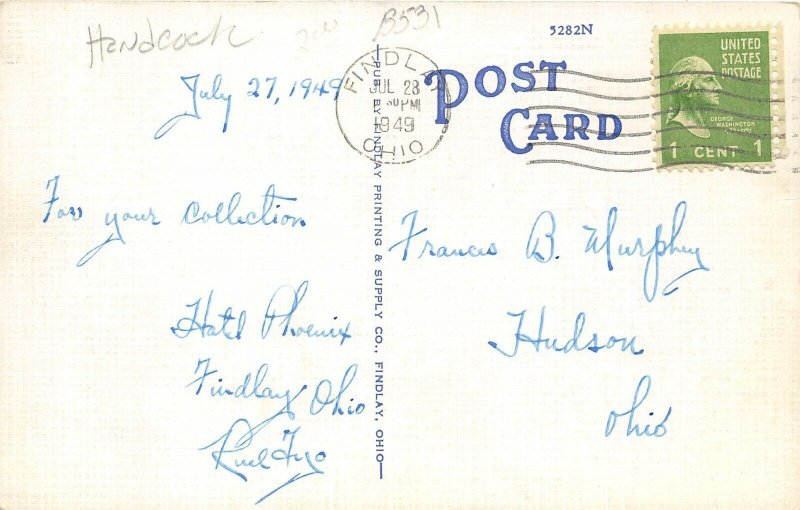 Handcock
B531
5282N
July 27, 1949
FINDLAY
JUL 28
PM
1949
OHIO
POST
CARD
UNITED
STATES
POSTAGE
GEORGE
WASHINGTON
1 CENT 1
For your collection
Hotel Phoenix
Findlay Ohio
PUB. BY FINDLAY PRINTING & SUPPLY CO., FINDLAY, OHIO
Francis B. Murphey
Hudson
Ohio